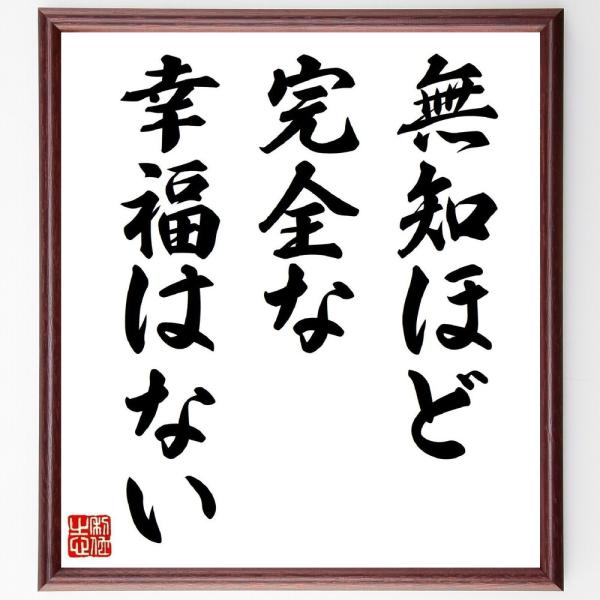 無知ほど
完全な
幸福はない